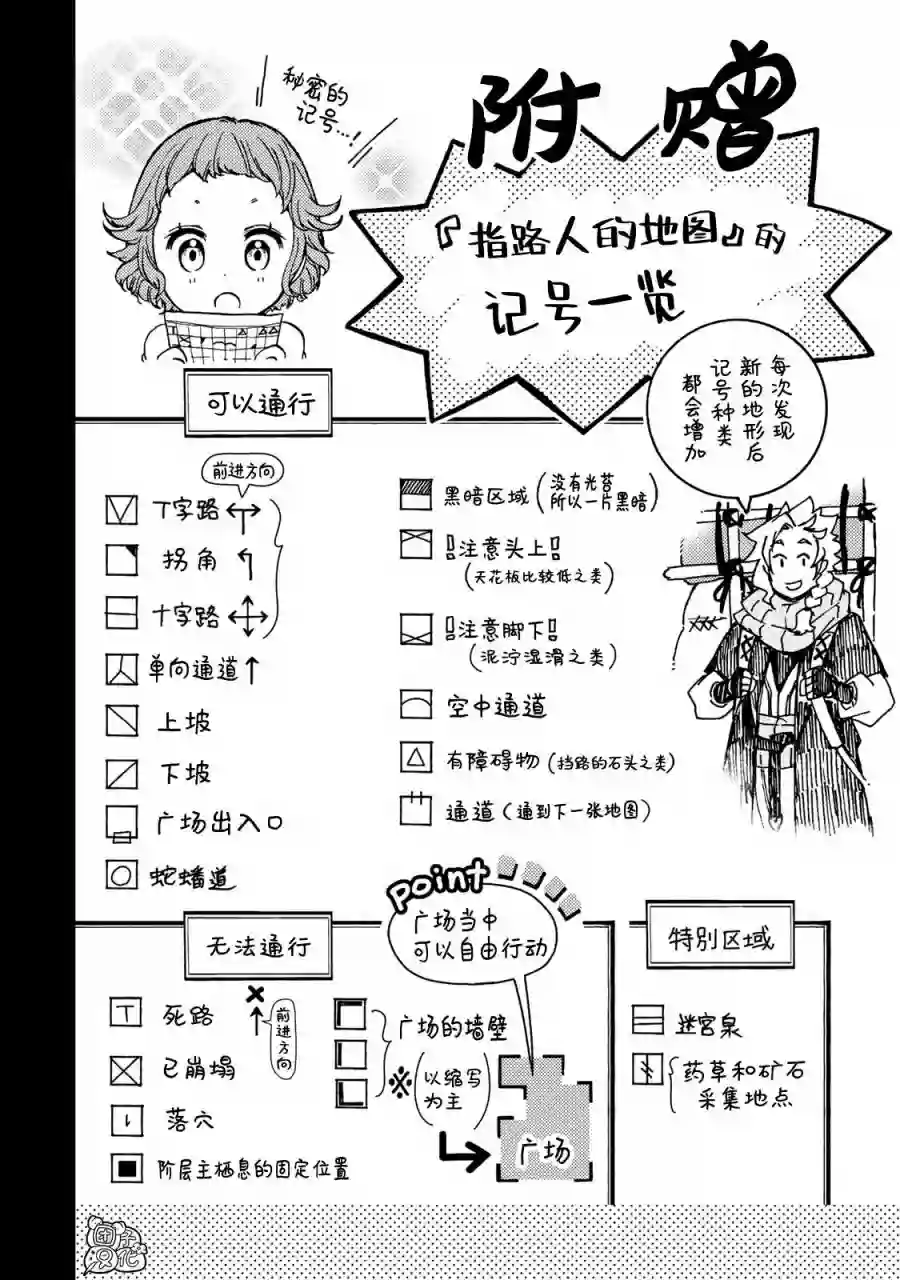 附赠
『指路人的地图』的
记号一览
秘密的
记号…!
每次发现
新的地形后
记号种类
都会增加
可以通行
前进方向
丁字路
拐角
十字路
单向通道
上坡
下坡
广场出入口
蛇蟠道
黑暗区域(没有光苔
所以一片黑暗)
!!注意头上!!
(天花板比较低之类)
!!注意脚下!!
(泥泞湿滑之类)
空中通道
有障碍物(挡路的石头之类)
通道(通到下一张地图)
无法通行
前进方向
死路
已崩塌
落穴
阶层主栖息的固定位置
广场的墙壁
※(以缩写
为主)
point
广场当中
可以自由行动
广场
特别区域
迷宫泉
药草和矿石
采集地点
团子只化